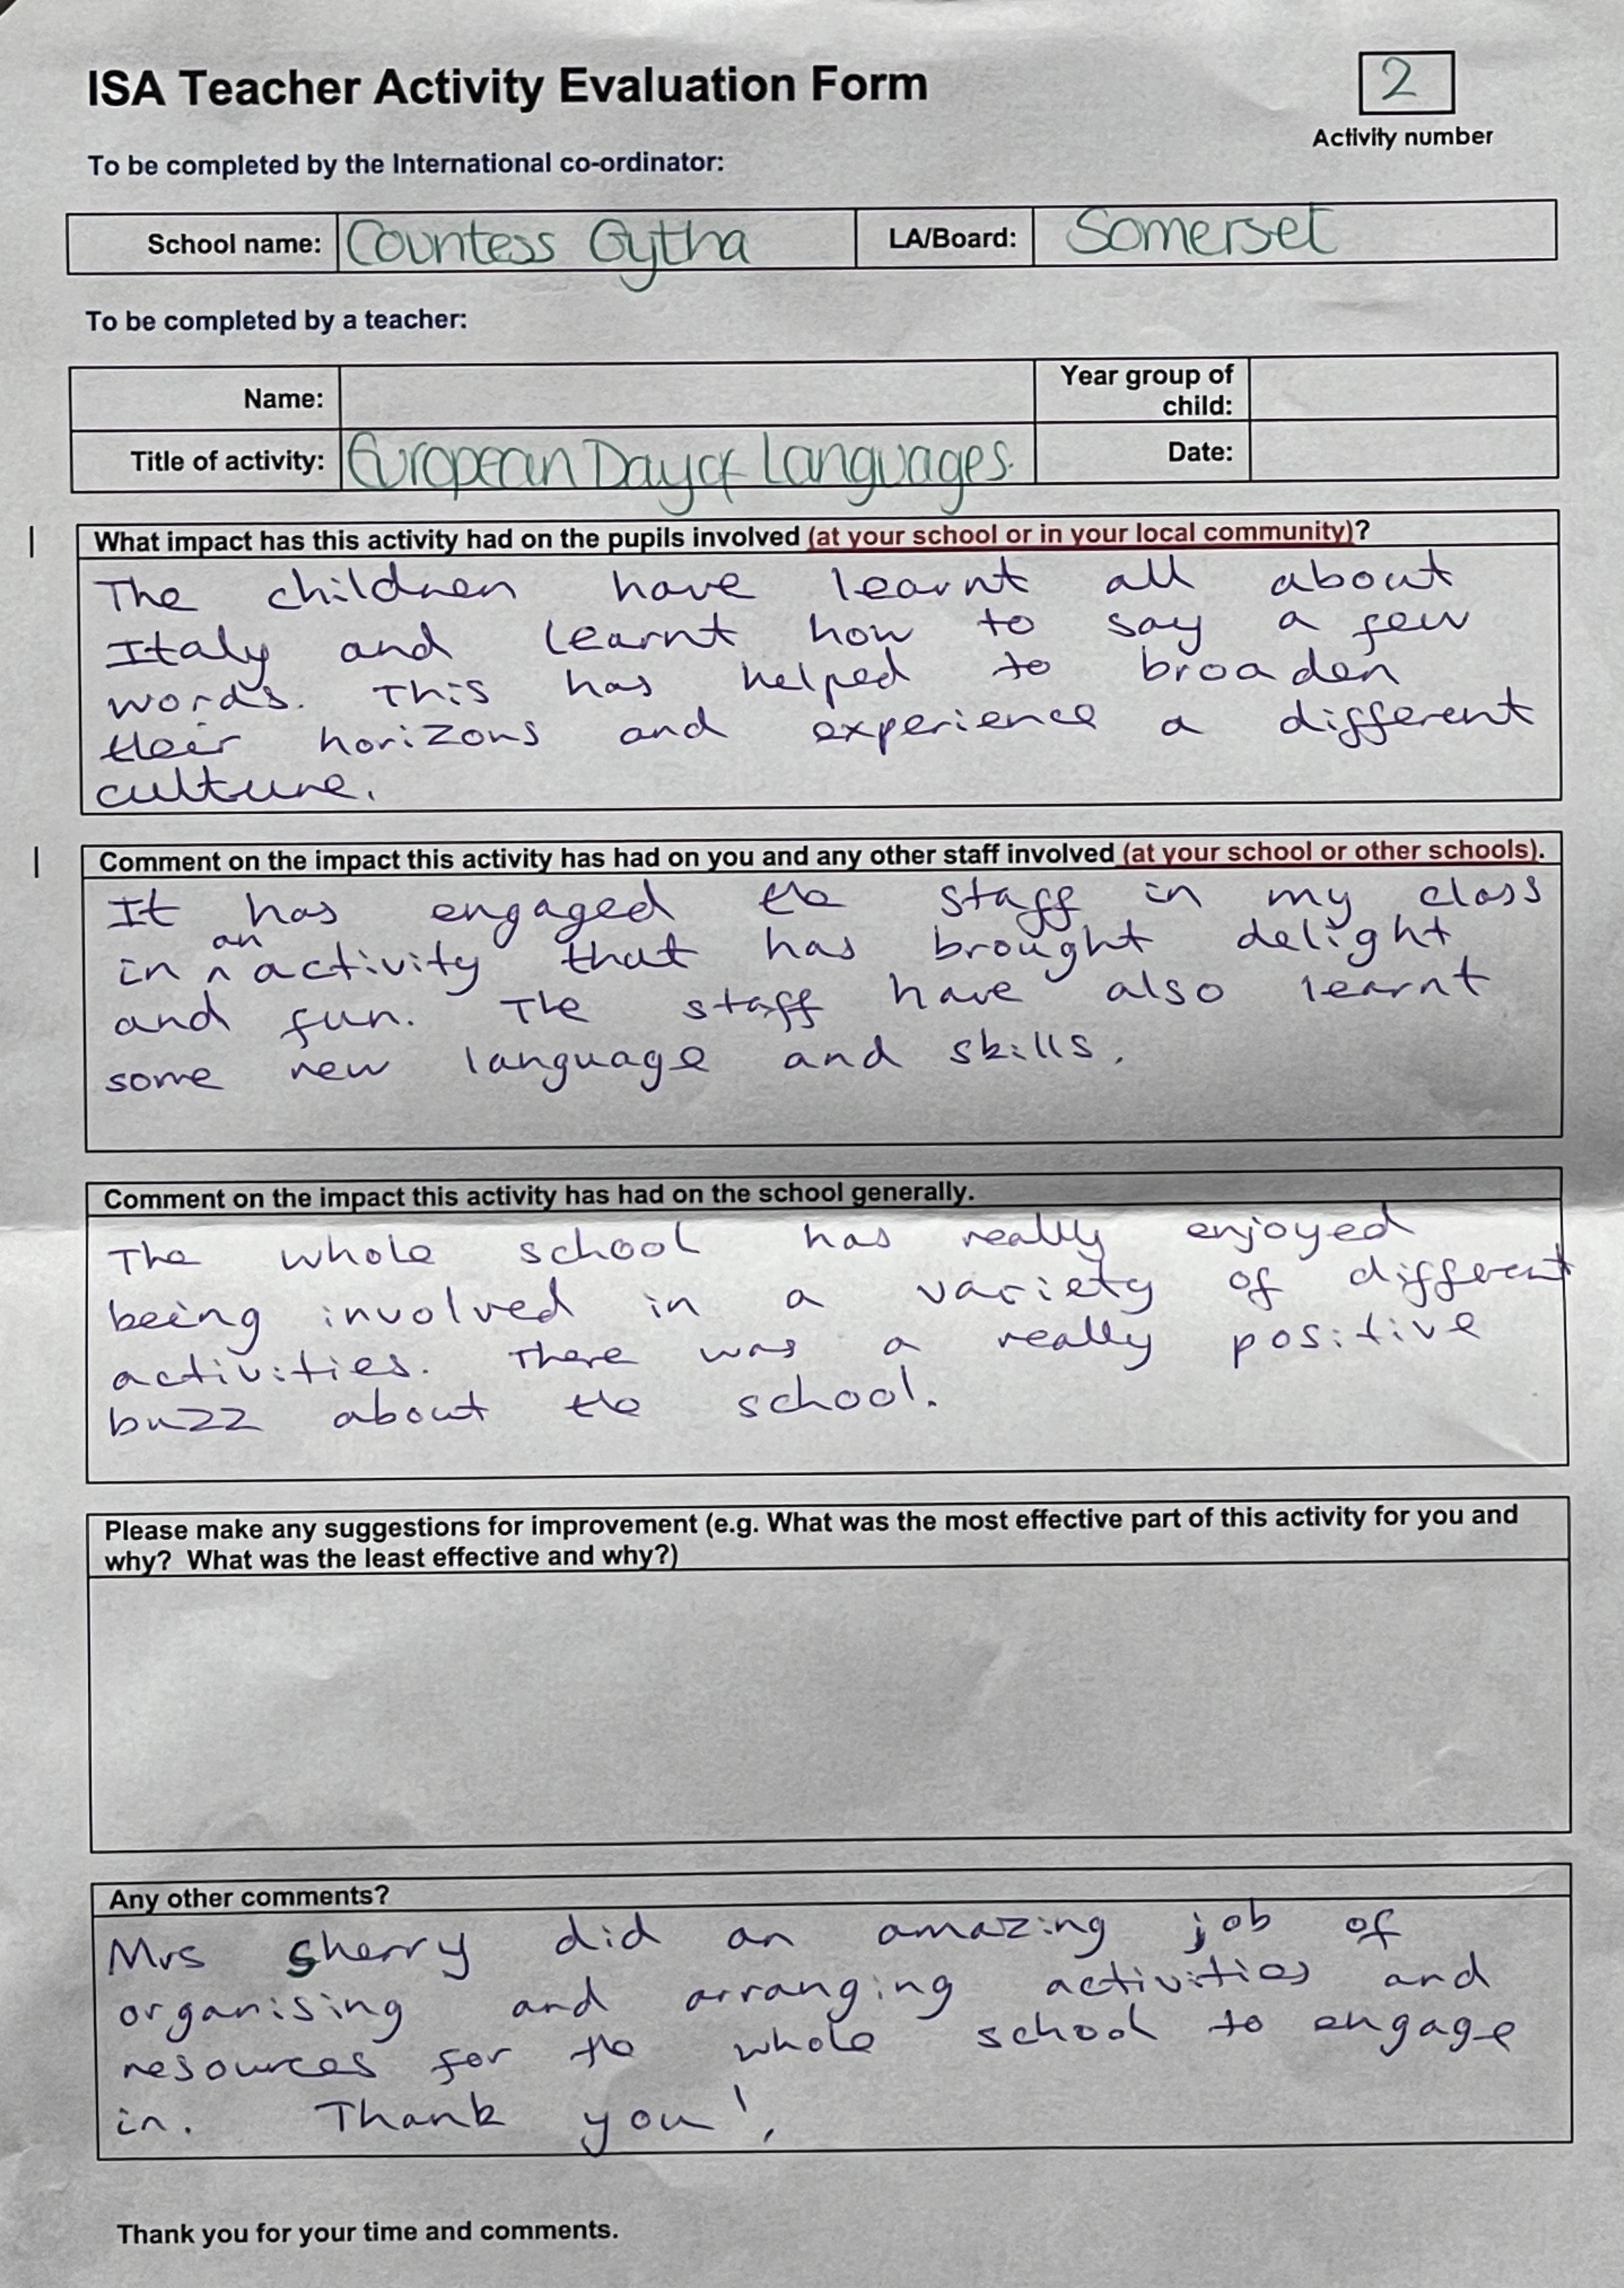 ISA Teacher Activity Evaluation Form
2
Activity number
To be completed by the International co-ordinator:
School name: Countess Gytha LA/Board: Somerset
To be completed by a teacher:
Name: Year group of child:
Title of activity: European Day of Languages. Date:
What impact has this activity had on the pupils involved (at your school or in your local community)?
The children have learnt all about
Italy and learnt how to say a few
words. This has helped to broaden
their horizons and experience a different
culture.
Comment on the impact this activity has had on you and any other staff involved (at your school or other schools).
It has engaged the staff in my class
in an activity that has brought delight
and fun. The staff have also learnt
some new language and skills.
Comment on the impact this activity has had on the school generally.
The whole school has really enjoyed
being involved in a variety of different
activities. There was a really positive
buzz about the school.
Please make any suggestions for improvement (e.g. What was the most effective part of this activity for you and
why? What was the least effective and why?)
Any other comments?
Mrs Sherry did an amazing job of
organising and arranging activities and
resources for the whole school to engage
in. Thank you!
Thank you for your time and comments.